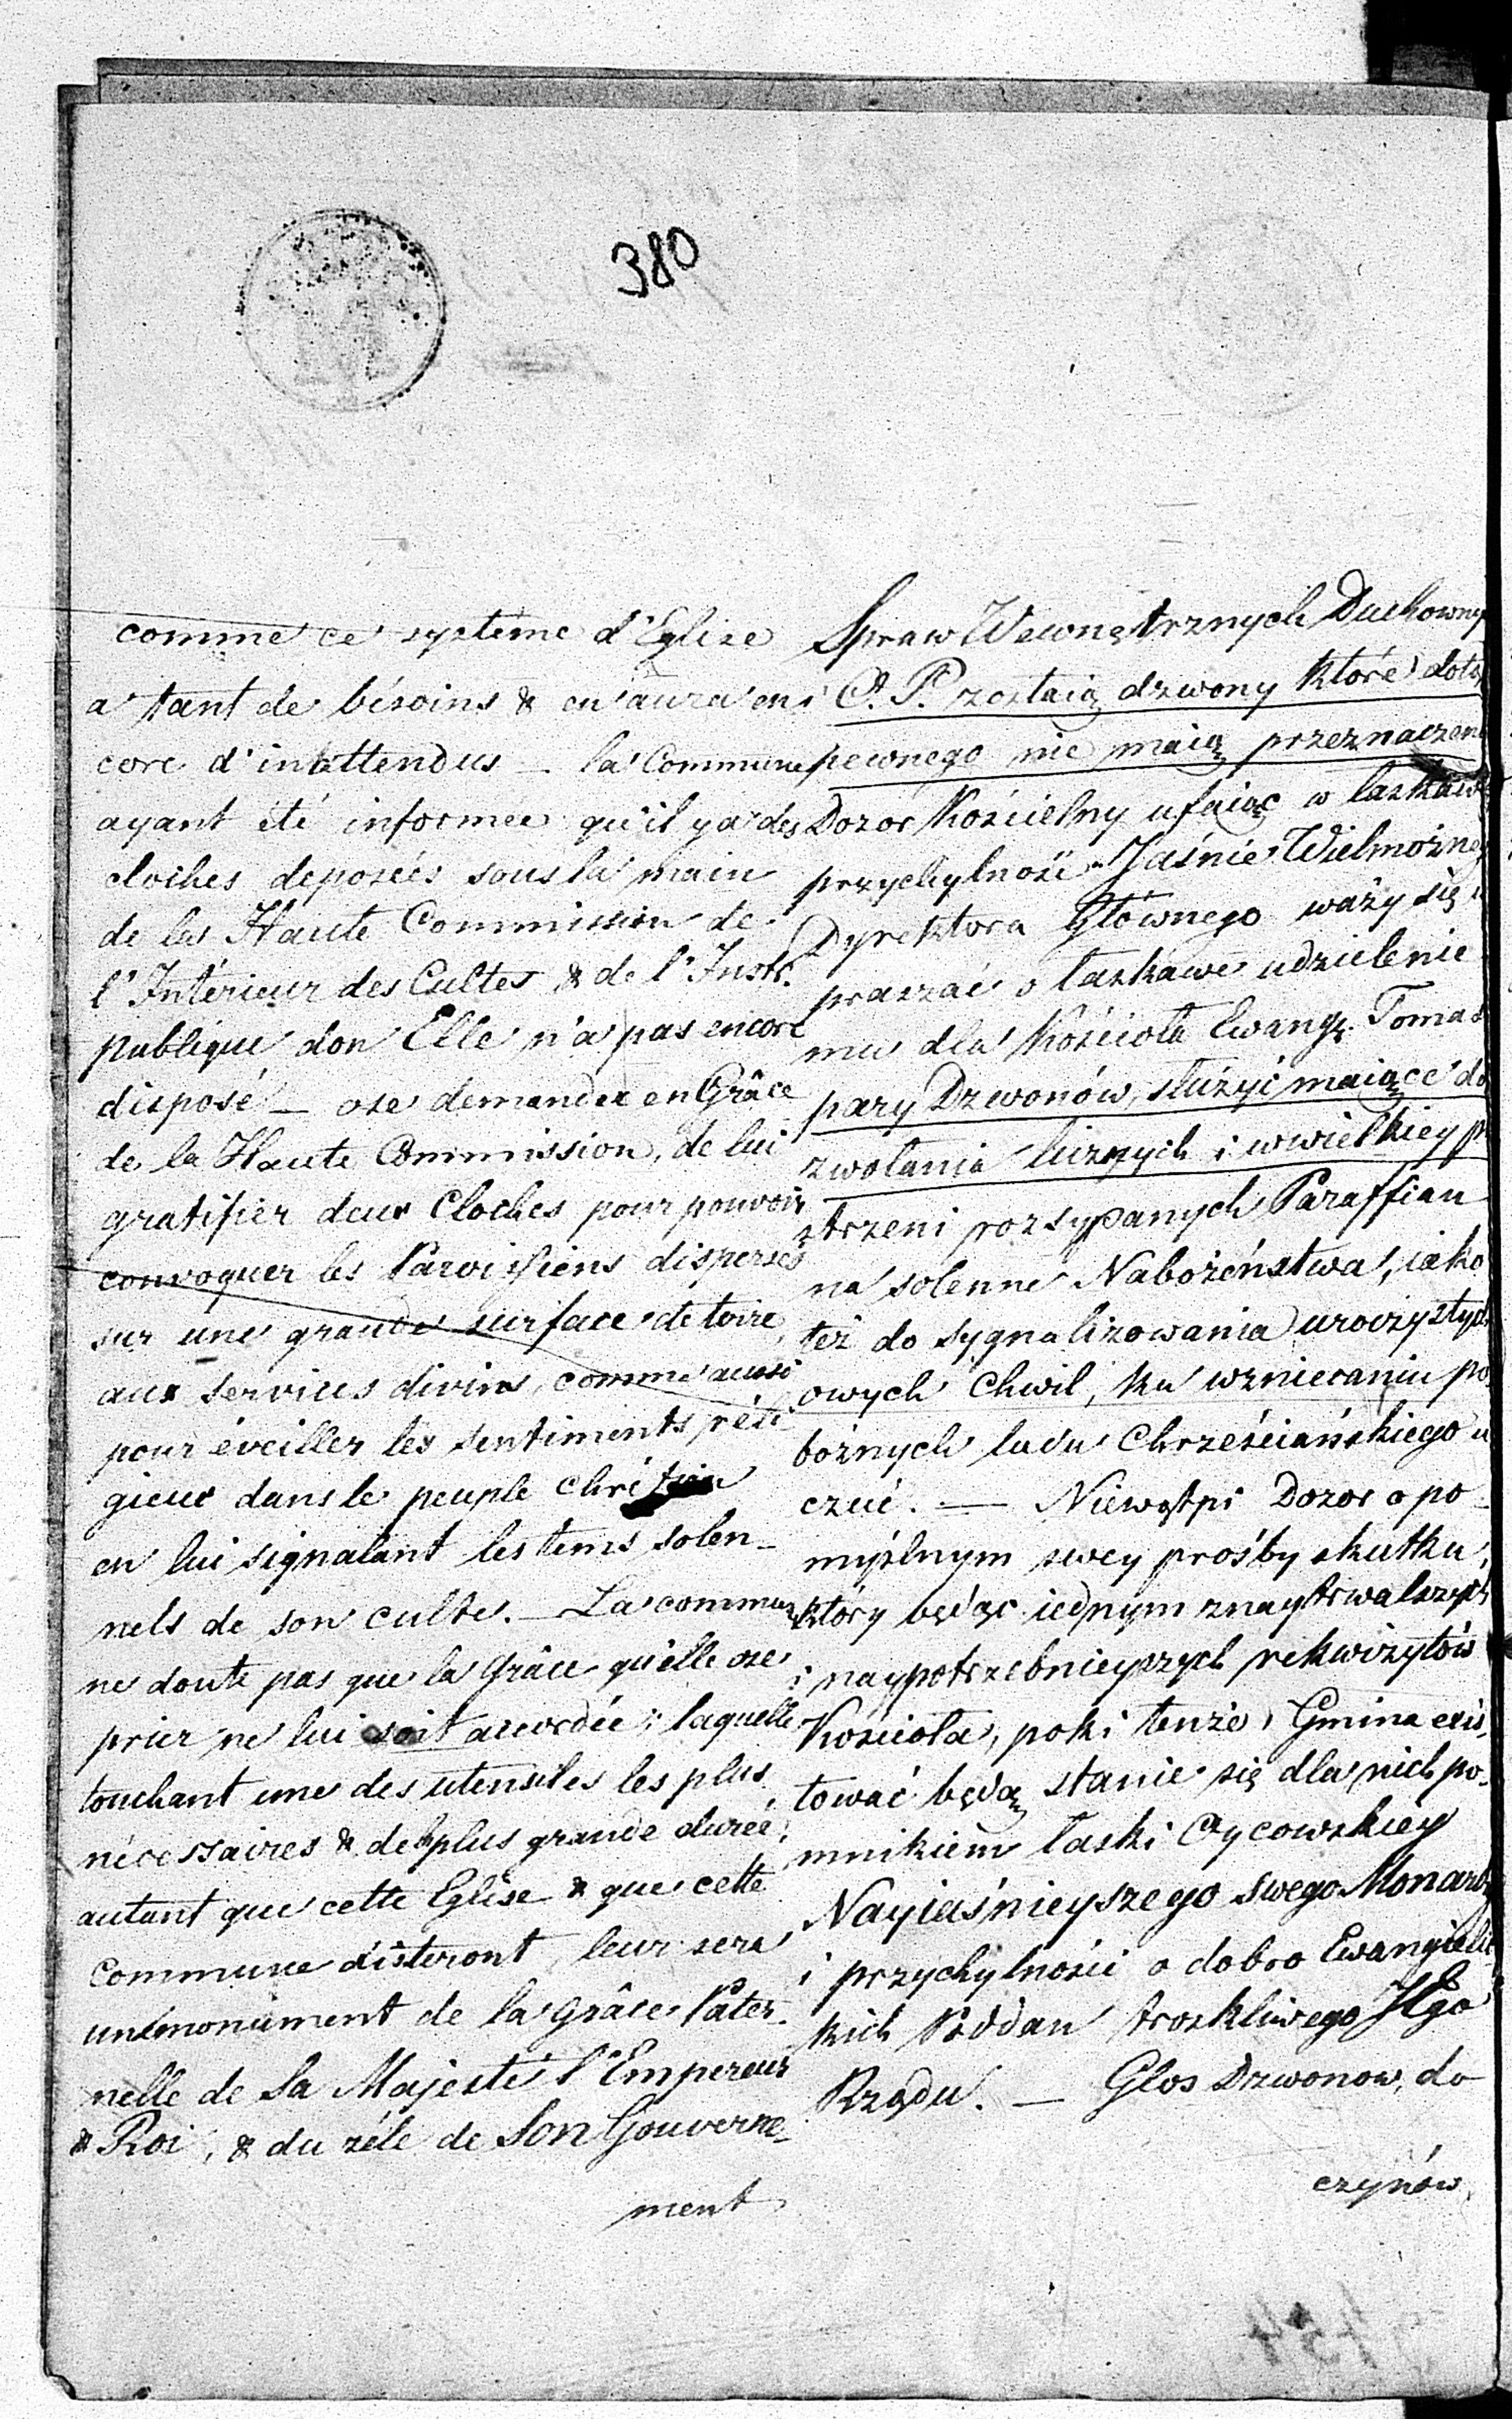 380
comme ce système d'Eglise
a tant de bésoins & en aura en
core d'inattendus _ la Commune
ayant été informée qu'il y a des
cloches deposées sous la main
de la Haute Commission de
l'Intérieur des Cultes & de l'Instr.
publique don Elle n'a pas encore
disposé _ ose demander en Grâce
de la Haute Commission, de lui
gratifier deux Cloches pour pouvoir
convoquer les Paroissiens dispersés
sur une grande surface de toire,
aux services divins, comme aussi
pour éveiller les sentiments réli-
gieux dans le peuple chrétien
en lui signalant les tems solen-
nels de son culte. _ La commun
ne doute pas que la Grâce qu'elle ose
prier ne lui soit accordée; laquelle
touchant une des utensiles les plus
nécessaires & de plus grande durée,
autant que cette Eglise & que cette
Commune existeront, leur sera
un monument de la Grâce Pater-
nelle de Sa Majesté l'Empereur
& Roi, & du zéle de Son Gouverne-
ment
Spraw Wewnętrznych Duchowny
O. P. zostaią dzwony które dotą
pewnego nie maią przeznaczen
Dozór Kościelny ufaiąc w łaskaw
przychylność Jaśnie Wielmożneg
Dyrektora Głównego waży się u
praszać o łaskawe udzielenie
mu dla Kościoła Ewang. Tomas
pary Dzwonów, służyć maiące do
zwołania licznych i w wielkiey p
strzeni rozsypanych Paraffian
na solenne Nabożeństwa, iako
też do sygnalizowania uroczystych
owych Chwil, ku wzniecaniu po-
bożnych ludu Chrześciańskiego u
czuć. — Niewątpi Dozór o po-
myślnym swey prośby skutku,
który będąc iednym z naytrwalszych
i naypotrzebnieyszych rekwizytów
Kościoła, poki tenże i Gmina exis
tować będą stanie się dla nich po-
mnikiem łaski Oycowskiey
Nayiaśnieyszego swego Monarch
i przychylności o dobro Ewangielic
kich Poddan troskliwego JEgo
Rządu. — Głos Dzwonów, do
czynów